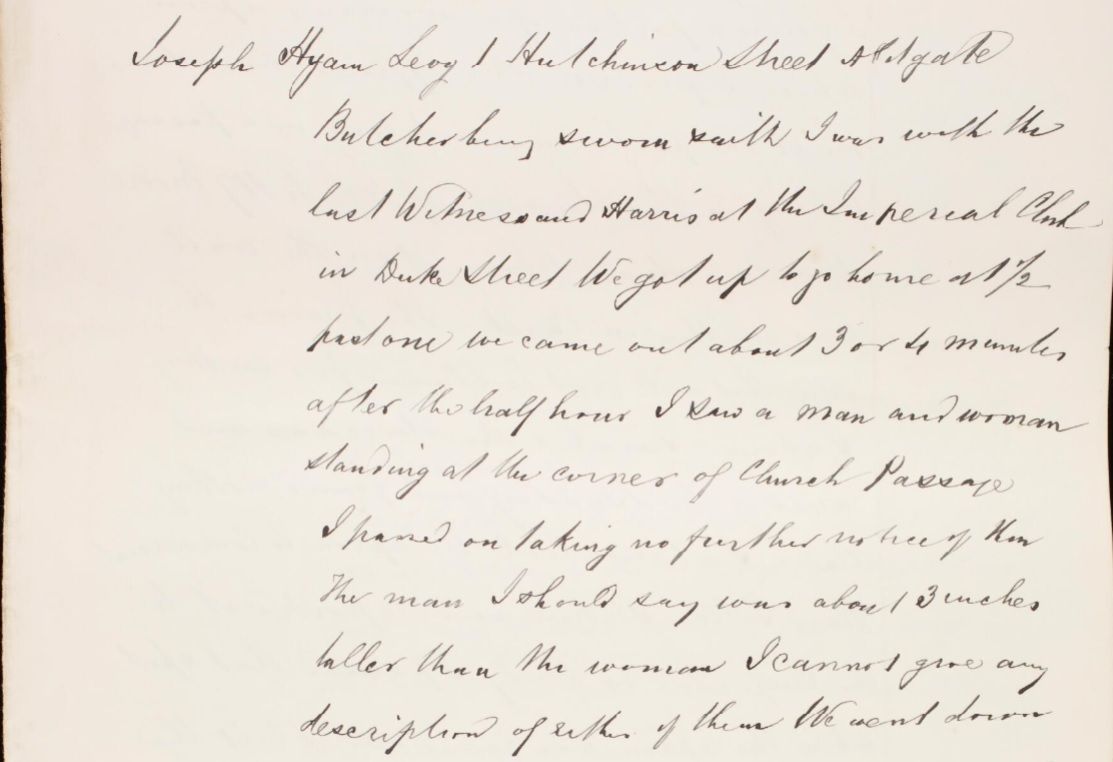 Joseph Hyam Levy 1 Hutchinson Street Aldgate
Butcher being sworn saith I was with the
last Witness and Harris at the Imperial Club
in Duke Street We got up to go home at 1/2
past one we came out about 3 or 4 minutes
after the half hour I saw a man and woman
standing at the corner of Church Passage
I passed on taking no further notice of them
The man I should say was about 3 inches
taller than the woman I cannot give any
description of either of them We went down